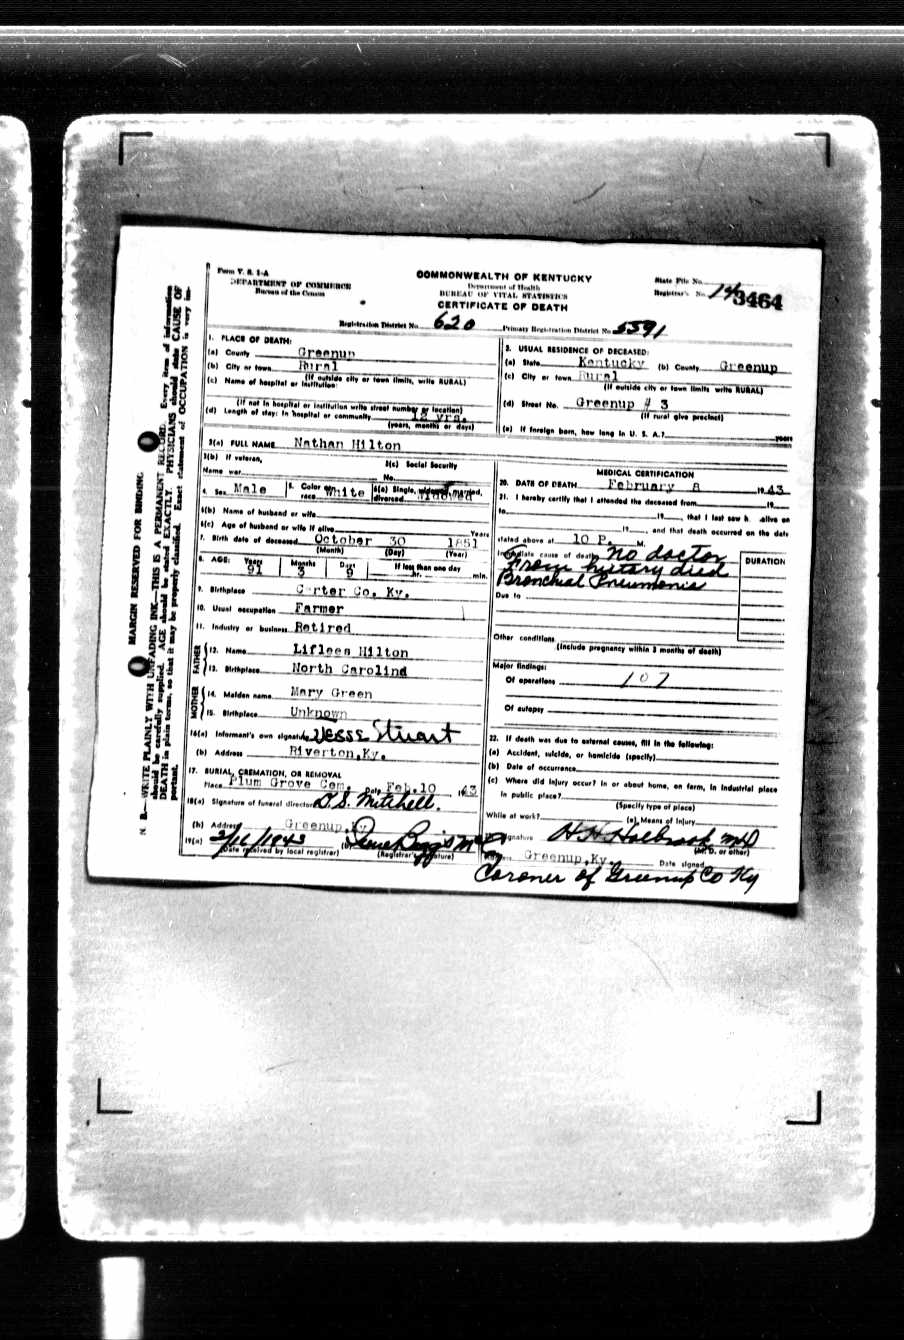 Form V. S. 1-A
DEPARTMENT OF COMMERCE
Bureau of the Census
COMMONWEALTH OF KENTUCKY
Department of Health
BUREAU OF VITAL STATISTICS
CERTIFICATE OF DEATH
State File No.
Registrar's No. 14
3464
Registration District No. 620
Primary Registration District No. 5591
1. PLACE OF DEATH:
(a) County Greenup
(b) City or town Rural
(If outside city or town limits, write RURAL)
(c) Name of hospital or institution:
(If not in hospital or institution write street number or location)
(d) Length of stay: In hospital or community 12 yrs.
(years, months or days)
2. USUAL RESIDENCE OF DECEASED:
(a) State Kentucky (b) County Greenup
(c) City or town Rural
(If outside city or town limits write RURAL)
(d) Street No. Greenup # 3
(If rural give precinct)
(e) If foreign born, how long in U. S. A.? years
3(a) FULL NAME Nathan Hilton
3(b) If veteran,
Name war
3(c) Social Security
No.
4. Sex Male
5. Color or race White
6(a) Single, widowed, married, divorced Widowed
6(b) Name of husband or wife
6(c) Age of husband or wife if alive Years
7. Birth date of deceased October 30 1851
(Month) (Day) (Year)
8. AGE: Years 91 Months 3 Days 9 If less than one day hr. min.
9. Birthplace Carter Co, Ky.
10. Usual occupation Farmer
11. Industry or business Retired
FATHER
12. Name Liflees Hilton
13. Birthplace North Carolina
MOTHER
14. Maiden name Mary Green
15. Birthplace Unknown
16(a) Informant's own signature Jesse Stuart
(b) Address Riverton, Ky.
17. BURIAL, CREMATION, OR REMOVAL
Place Plum Grove Cem. Date Feb. 10 1943
18(a) Signature of funeral director D. S. Mitchell.
(b) Address Greenup, Ky
19(a) 2/16/1943
(Date received by local registrar)
(b)
(Registrar's signature)
MEDICAL CERTIFICATION
20. DATE OF DEATH February 8 1943
21. I hereby certify that I attended the deceased from 19
to 19, that I last saw h alive on
19, and that death occurred on the date
stated above at 10 P. M.
Immediate cause of death No doctor
From histary died
Bronchial Pneumonia
DURATION
Due to
Other conditions
(Include pregnancy within 3 months of death)
Major findings:
Of operations 107
Of autopsy
22. If death was due to external causes, fill in the following:
(a) Accident, suicide, or homicide (specify)
(b) Date of occurrence
(c) Where did injury occur? in or about home, on farm, in industrial place
in public place?
(Specify type of place)
While at work? (e) Means of injury
Signature H H Holbrook MD
(M. D. or other)
Greenup, Ky. Date signed
Coroner of Greenup Co Ky
MARGIN RESERVED FOR BINDING
N. B.—WRITE PLAINLY WITH UNFADING INK—THIS IS A PERMANENT RECORD. Every item of information
should be carefully supplied. AGE should be stated EXACTLY. PHYSICIANS should state CAUSE OF
DEATH in plain terms, so that it may be properly classified. Exact statement of OCCUPATION is very im-
portant.